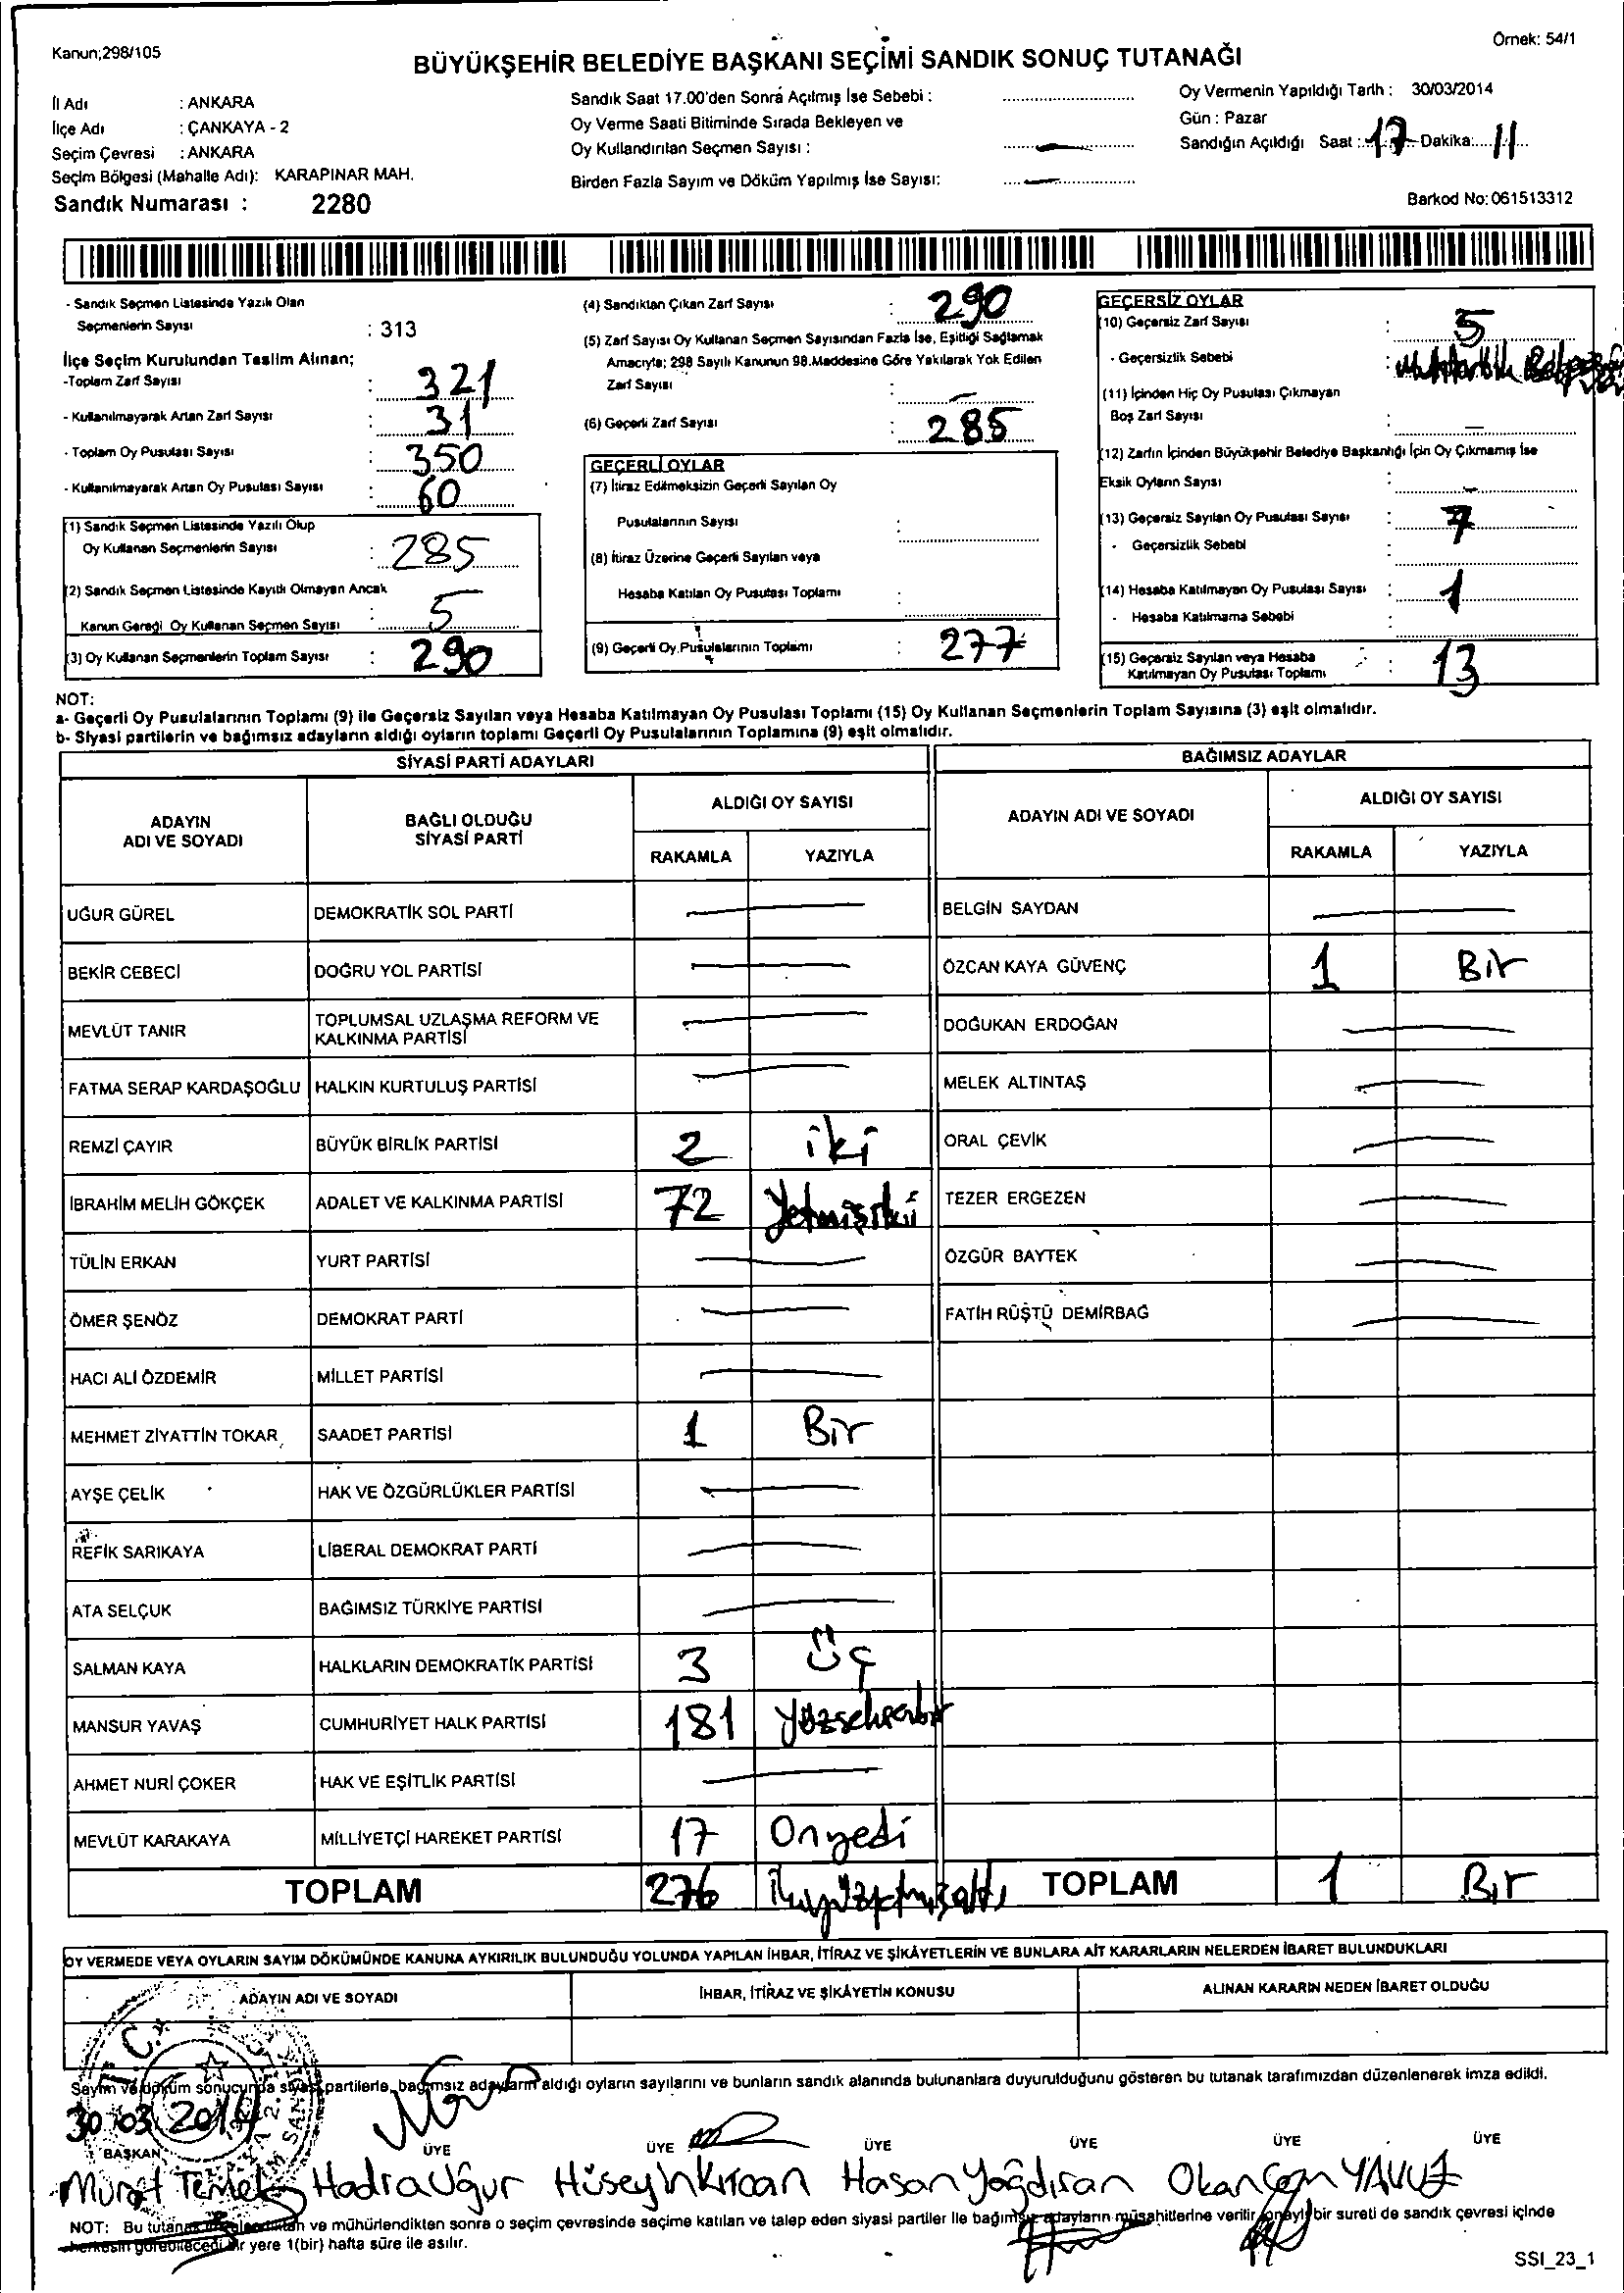 Kanun;298/105
Örnek: 54/1
BÜYÜKŞEHİR BELEDİYE BAŞKANI SEÇİMİ SANDIK SONUÇ TUTANAĞI
İl Adı : ANKARA
İlçe Adı : ÇANKAYA - 2
Seçim Çevresi : ANKARA
Seçim Bölgesi (Mahalle Adı): KARAPINAR MAH.
Sandık Numarası : 2280
Sandık Saat 17.00'den Sonra Açılmış İse Sebebi :
Oy Verme Saati Bitiminde Sırada Bekleyen ve
Oy Kullandırılan Seçmen Sayısı : —
Birden Fazla Sayım ve Döküm Yapılmış İse Sayısı: —
Oy Vermenin Yapıldığı Tarih : 30/03/2014
Gün : Pazar
Sandığın Açıldığı Saat : 17 Dakika: 11
Barkod No: 061513312
- Sandık Seçmen Listesinde Yazılı Olan
Seçmenlerin Sayısı : 313
İlçe Seçim Kurulundan Teslim Alınan;
-Toplam Zarf Sayısı : 321
- Kullanılmayarak Artan Zarf Sayısı : 31
- Toplam Oy Pusulası Sayısı : 350
- Kullanılmayarak Artan Oy Pusulası Sayısı : 60
(1) Sandık Seçmen Listesinde Yazılı Olup
Oy Kullanan Seçmenlerin Sayısı : 285
(2) Sandık Seçmen Listesinde Kayıtlı Olmayan Ancak
Kanun Gereği Oy Kullanan Seçmen Sayısı : 5
(3) Oy Kullanan Seçmenlerin Toplam Sayısı : 290
(4) Sandıktan Çıkan Zarf Sayısı : 290
(5) Zarf Sayısı Oy Kullanan Seçmen Sayısından Fazla İse, Eşitliği Sağlamak
Amacıyla; 298 Sayılı Kanunun 98.Maddesine Göre Yakılarak Yok Edilen
Zarf Sayısı : —
(6) Geçerli Zarf Sayısı : 285
GEÇERLİ OYLAR
(7) İtiraz Edilmeksizin Geçerli Sayılan Oy
Pusulalarının Sayısı :
(8) İtiraz Üzerine Geçerli Sayılan veya
Hesaba Katılan Oy Pusulası Toplamı :
(9) Geçerli Oy Pusulalarının Toplamı : 277
GEÇERSİZ OYLAR
(10) Geçersiz Zarf Sayısı : 5
- Geçersizlik Sebebi :
(11) İçinden Hiç Oy Pusulası Çıkmayan
Boş Zarf Sayısı : —
(12) Zarfın İçinden Büyükşehir Belediye Başkanlığı İçin Oy Çıkmamış İse
Eksik Oyların Sayısı : —
(13) Geçersiz Sayılan Oy Pusulası Sayısı : 7
- Geçersizlik Sebebi :
(14) Hesaba Katılmayan Oy Pusulası Sayısı : 1
- Hesaba Katılmama Sebebi :
(15) Geçersiz Sayılan veya Hesaba
Katılmayan Oy Pusulası Toplamı : 13
NOT:
a- Geçerli Oy Pusulalarının Toplamı (9) ile Geçersiz Sayılan veya Hesaba Katılmayan Oy Pusulası Toplamı (15) Oy Kullanan Seçmenlerin Toplam Sayısına (3) eşit olmalıdır.
b- Siyasi partilerin ve bağımsız adayların aldığı oyların toplamı Geçerli Oy Pusulalarının Toplamına (9) eşit olmalıdır.
SİYASİ PARTİ ADAYLARI
ADAYIN ADI VE SOYADI
BAĞLI OLDUĞU SİYASİ PARTİ
ALDIĞI OY SAYISI
RAKAMLA YAZIYLA
UĞUR GÜREL DEMOKRATİK SOL PARTİ —
BEKİR CEBECİ DOĞRU YOL PARTİSİ —
MEVLÜT TANIR TOPLUMSAL UZLAŞMA REFORM VE KALKINMA PARTİSİ —
FATMA SERAP KARDAŞOĞLU HALKIN KURTULUŞ PARTİSİ —
REMZİ ÇAYIR BÜYÜK BİRLİK PARTİSİ 2 iki
İBRAHİM MELİH GÖKÇEK ADALET VE KALKINMA PARTİSİ 72 Yetmişiki
TÜLİN ERKAN YURT PARTİSİ —
ÖMER ŞENÖZ DEMOKRAT PARTİ —
HACI ALİ ÖZDEMİR MİLLET PARTİSİ —
MEHMET ZİYATTİN TOKAR SAADET PARTİSİ 1 Bir
AYŞE ÇELİK HAK VE ÖZGÜRLÜKLER PARTİSİ —
REFİK SARIKAYA LİBERAL DEMOKRAT PARTİ —
ATA SELÇUK BAĞIMSIZ TÜRKİYE PARTİSİ —
SALMAN KAYA HALKLARIN DEMOKRATİK PARTİSİ 3 üç
MANSUR YAVAŞ CUMHURİYET HALK PARTİSİ 181 yüzseksenbir
AHMET NURİ ÇOKER HAK VE EŞİTLİK PARTİSİ —
MEVLÜT KARAKAYA MİLLİYETÇİ HAREKET PARTİSİ 17 Onyedi
TOPLAM 276 ikiyüzyetmişaltı
BAĞIMSIZ ADAYLAR
ADAYIN ADI VE SOYADI
ALDIĞI OY SAYISI
RAKAMLA YAZIYLA
BELGİN SAYDAN —
ÖZCAN KAYA GÜVENÇ 1 Bir
DOĞUKAN ERDOĞAN —
MELEK ALTINTAŞ —
ORAL ÇEVİK —
TEZER ERGEZEN —
ÖZGÜR BAYTEK —
FATİH RÜŞTÜ DEMİRBAĞ —
TOPLAM 1 Bir
OY VERMEDE VEYA OYLARIN SAYIM DÖKÜMÜNDE KANUNA AYKIRILIK BULUNDUĞU YOLUNDA YAPILAN İHBAR, İTİRAZ VE ŞİKÂYETLERİN VE BUNLARA AİT KARARLARIN NELERDEN İBARET BULUNDUKLARI
ADAYIN ADI VE SOYADI İHBAR, İTİRAZ VE ŞİKÂYETİN KONUSU ALINAN KARARIN NEDEN İBARET OLDUĞU
Sayım ve döküm sonucunda siyasi partilerle, bağımsız adayların aldığı oyların sayılarını ve bunların sandık alanında bulunanlara duyurulduğunu gösteren bu tutanak tarafımızdan düzenlenerek imza edildi.
30.03.2014
T.C.
BAŞKAN ÜYE ÜYE ÜYE ÜYE ÜYE ÜYE
Murat Temel Hadra Uğur Hüseyin Kırcan Hasan Yağdıran Okan Cem YAVUZ
NOT: Bu tutanak ve mühürlendikten sonra o seçim çevresinde seçime katılan ve talep eden siyasi partiler ile bağımsız adayların müşahitlerine verilir onaylı bir sureti de sandık çevresi içinde
herkesin görebileceği bir yere 1(bir) hafta süre ile asılır.
SSI_23_1